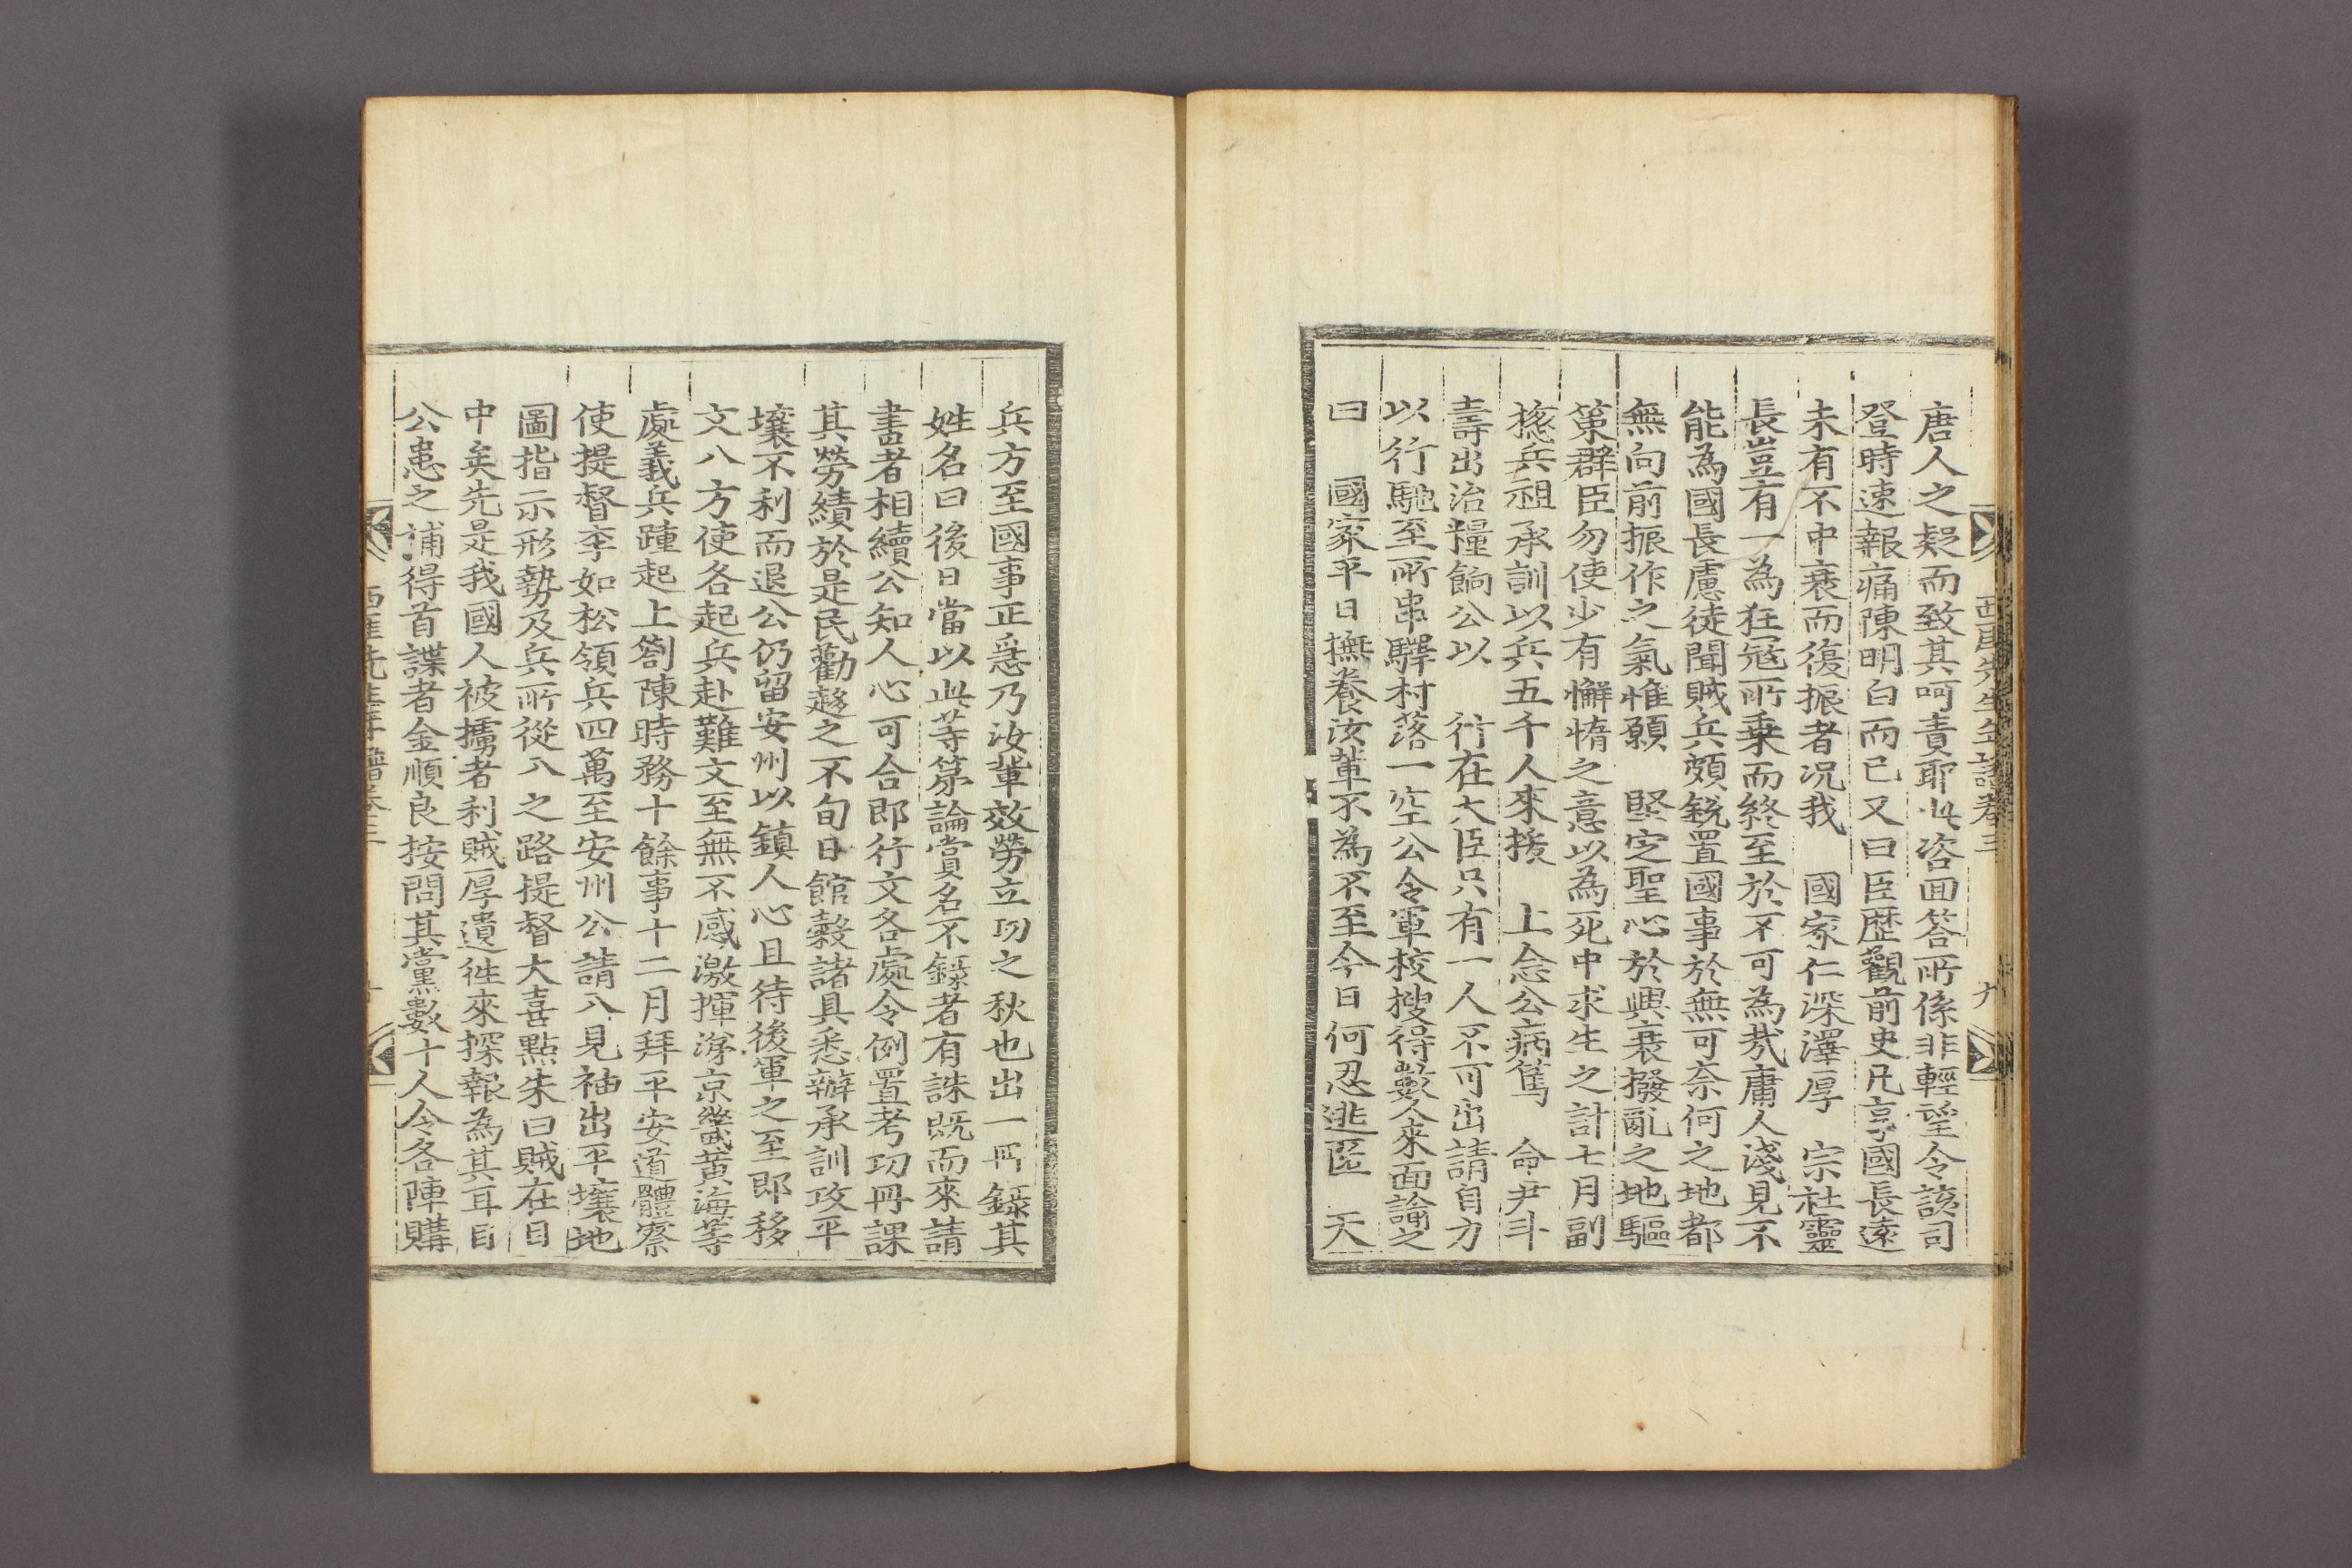 唐人之疑而致其呵責耶此咨回答所係非輕望令該司
登時速報痛陳明白而已又曰臣歷觀前史凡享國長遠
未有不中衰而復振者况我　國家仁深澤厚　宗社靈
長豈有一為狂寇所乗而終至於不可為㢤庸人淺見不
能為國長慮徒聞賊兵頗銳置國事於無可奈何之地都
無向前振作之氣惟願　堅定聖心於興衰撥亂之地驅
策群臣勿使少有懈惰之意以為死中求生之計七月副
摠兵祖承訓以兵五千人來援　上念公病篤　命尹斗
壽出治糧餉公以　行在大臣只有一人不可出請自力
以行馳至所串驛村落一空公令軍校搜得數人来面諭之
曰　國家平日撫養汝輩不為不至今日何忍逃匿　天
西厓先生年譜卷三　九
兵方至國事正急乃汝輩效勞立功之秋也出一冊錄其
姓名曰後日當以此等第論賞名不錄者有誅既而來請
書者相續公知人心可合即行文各處令例置考功冊課
其勞績於是民勸趍之不旬日館糓諸具悉辦承訓攻平
壤不利而退公仍留安州以鎮人心且待後軍之至即移
文八方使各起兵赴難文至無不感激揮涕京畿黄海等
處義兵踵起上劄陳時務十餘事十二月拜平安道體察
使提督李如松領兵四萬至安州公請入見袖出平壤地
圖指示形勢及兵所從入之路提督大喜點朱曰賊在目
中矣先是我國人被擄者利賊厚遺徃來探報為其耳目
公患之補得首諜者金順良按問其黨數十人令各陣購
西厓先生年譜卷三　十